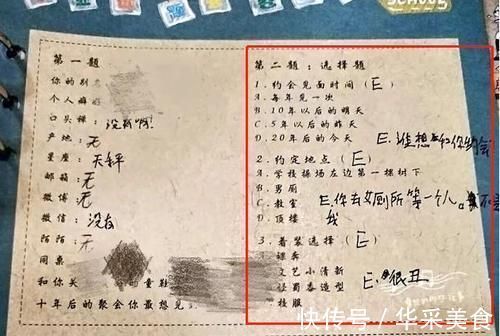 SCHOOL
第一题
你的别
个人癖
口头禅：没有啊！
产地：无
星座：天秤
邮箱：无
微博：无
微信：没有
陌陌：无
同桌
和你关
的童鞋
十年后的聚会你最想见
第二题：选择题
1.约会见面时间（E）
A.每年见一次
B.10年以后的明天
C.5年以后的昨天
D.20年后的今天
E.谁想和你约会
2.约定地点（E）
A.学校操场左边第一棵树下
B.男厕
C.教室
E.你去女厕所第一个人。
D.顶楼
我不是
3.着装选择（E）
裸奔
文艺小清新
怪蜀黍造型
E.很丑
校服
快传号/华采美食